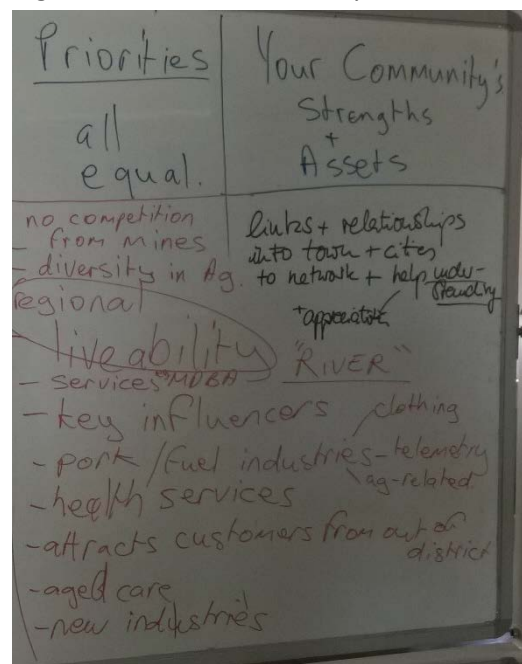 Priorities
all
equal.
Your Community's
Strengths
+
Assets
no competition
- from mines
- diversity in Ag.
regional
liveability
- services MDBA
links + relationships
into town + cites
to network + help under-
standing
+ appreciation
"RIVER"
- key influencers
clothing
- pork/fuel industries - telemetry
ag-related.
- health services
- attracts customers from out of
district
- aged care
- new industries